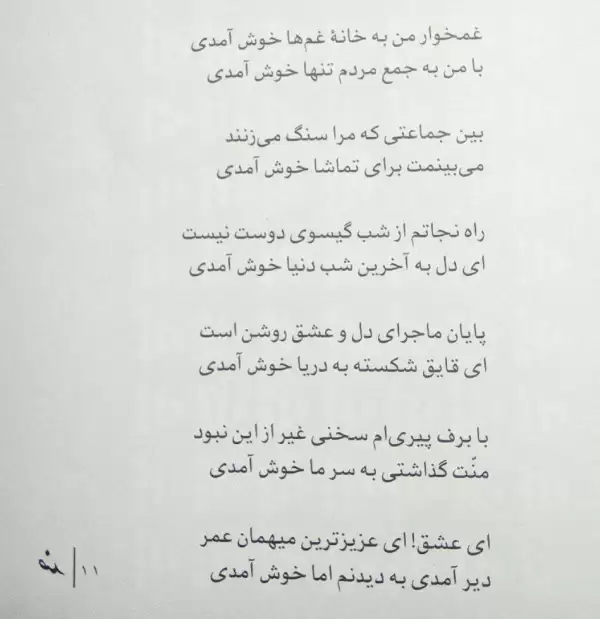 غمخوار من به خانهٔ غم‌ها خوش آمدی
با من به جمع مردم تنها خوش آمدی
بین جماعتی که مرا سنگ می‌زنند
می‌بینمت برای تماشا خوش آمدی
راه نجاتم از شب گیسوی دوست نیست
ای دل به آخرین شب دنیا خوش آمدی
پایان ماجرای دل و عشق روشن است
ای قایق شکسته به دریا خوش آمدی
با برف پیری‌ام سخنی غیر از این نبود
منّت گذاشتی به سر ما خوش آمدی
ای عشق! ای عزیزترین میهمان عمر
دیر آمدی به دیدنم اما خوش آمدی
۱۱